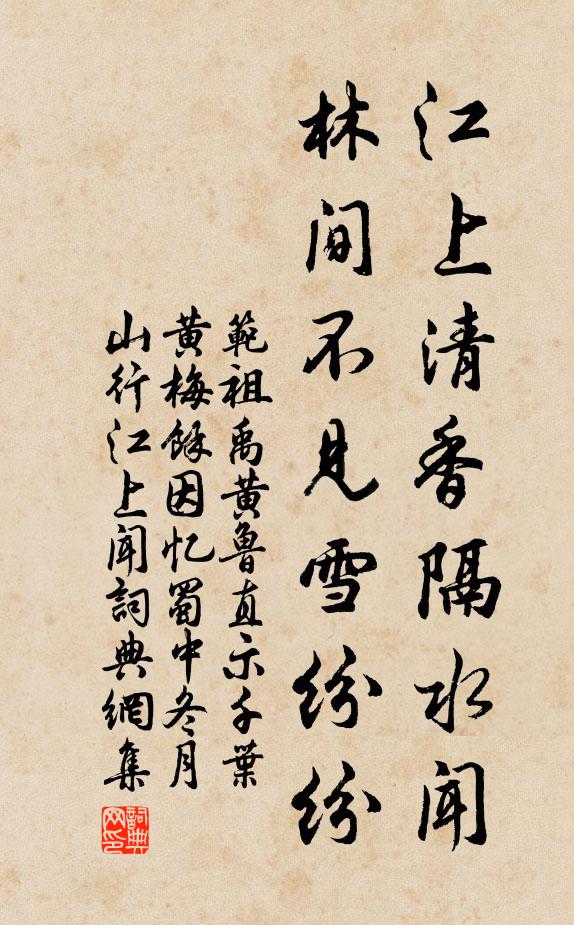 江上清香隔水闻
林间不见雪纷纷
範祖禹黄魯直示千葉
黄梅餘因忆蜀中冬月
山行江上闻詞典網集
詞典网印